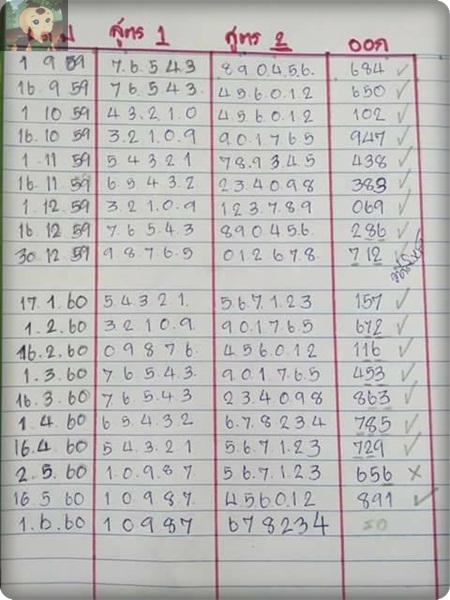 สูตร 1 สูตร 2 ออก
1 9 59 7.6.5.4.3 8.9.0.4.5.6. 684 ✓
16.9.59 7.6.5.4.3. 4.5.6.0.1.2 650 ✓
1 10 59 4.3.2.1.0 4.5.6.0.1.2 102 ✓
16.10 59 3.2.1.0.9 9.0.1.7.6.5 947 ✓
1.11 59 5 4 3 2 1 7.8.9.3.4.5 438 ✓
16.11 59 6.5.4.3.2 2.3.4.0.9.8 383 ✓
1.12.59 3.2.1.0.9 1.2.3.7.8.9 069 ✓
16.12 59 7 6 5 4 3 8 9 0 4 5 6. 286 ✓
30.12 59 9 8.7.6.5 0 1 2 6 7.8. 712 ✓
17.1.60 5 4 3 2 1. 5.6.7.1.2.3 157 ✓
1.2.60 3 2 1 0.9. 9.0.1.7.6.5 672 ✓
16.2.60 0 9 8 7 6. 4.5.6.0.1.2 116 ✓
1.3.60 7 6 5.4.3. 9.0.1.7.6.5 453 ✓
16.3.60 7 6 5.4.3 2.3.4.0.9.8 863 ✓
1.4.60 6.5.4.3.2 6.7.8.2.3.4 785 ✓
16.4.60 5 4.3.2.1 5.6.7.1.2.3 729 ✓
2.5.60 1.0.9.8.7 5.6.7.1.2.3 656 ×
16 5 60 1 0 9 8 7. 4.5.6.0.1.2 891 ✓
1.6.60 1 0 9 8 7 6 7 8 2 3 4